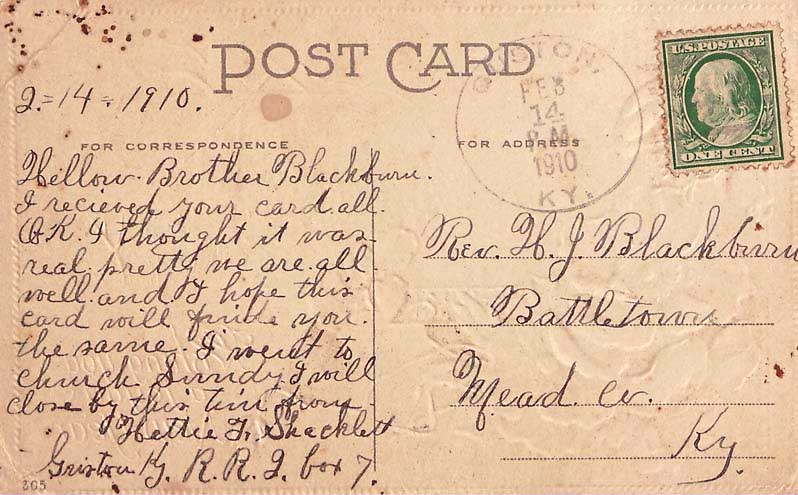 POST CARD
2-14-1910.
FOR CORRESPONDENCE
FOR ADDRESS
FEB
14
P.M.
1910
KY.
U.S. POSTAGE
ONE CENT
Hellow Brother Blackburn.
I recieved your card all.
O.K. I thought it was
real pretty we are all
well and I hope this
card will finde you.
the same. I went to
church Sundy I will
close by this time from
Hettie F. Shacklett
Ky. R. R. 2. box 7.
Rev. H. J. Blackburn
Battletown
Mead. Co.
Ky.
205